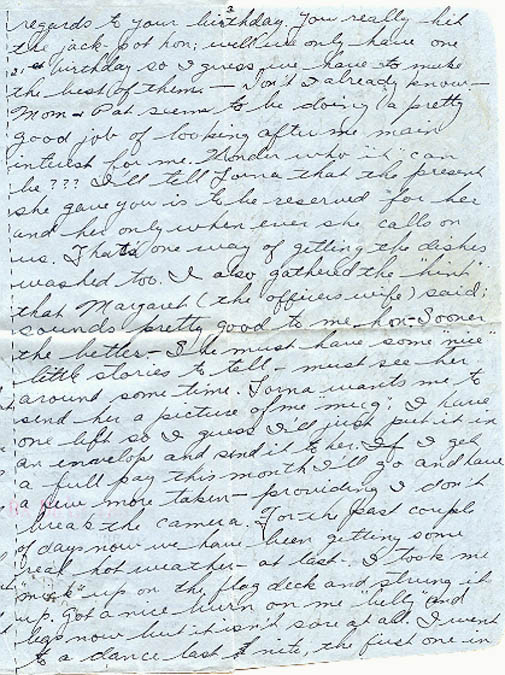 regards to your birthday. You really hit
the jack-pot hon; well we only have one
21st birthday so I guess we have to make
the best of them. - Don't I already know -
Mom & Pat seems to be doing a pretty
good job of looking after me main
interest for me. Wonder who "it" can
be ??? I'll tell Lorna that the present
she gave you is to be reserved for her
and her only when ever she calls on
us. Thats one way of getting the dishes
washed too. I also gathered the "hint"
that Margaret (the officers wife) said;
sounds pretty good to me hon - Sooner
the better - She must have some "nice"
little stories to tell - must see her
around some time. Lorna wants me to
send her a picture of me "mug"; I have
one left so I guess I'll just put it in
an envelop and send it to her. If I get
a full pay this month I'll go and have
a few more taken - providing I don't
break the camera. For the past couple
of days now we have been getting some
real hot weather - at last - I took me
up on the flag deck and strung it
up. Got a nice burn on me "belly" and
legs now but it isn't sore at all. I went
to a dance last nite, the first one in